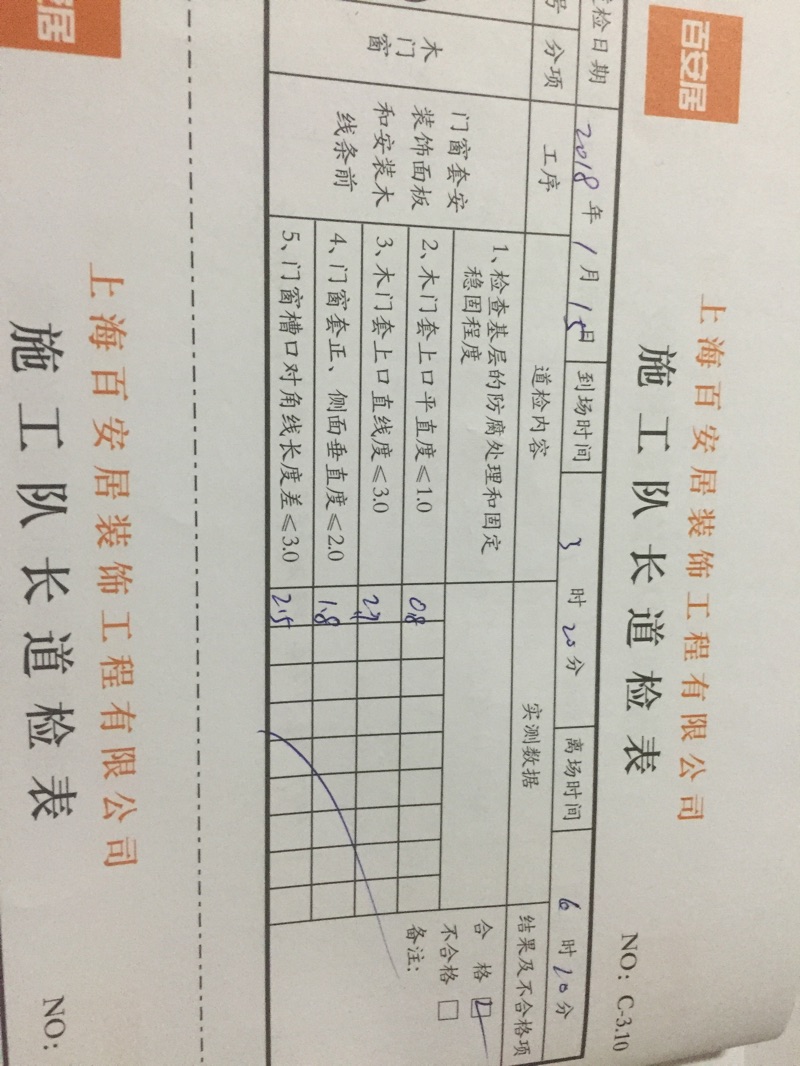 百安居
上海百安居装饰工程有限公司
施工队长道检表
NO: C-3.10
检日期 2018年1月15日 到场时间 3时20分 离场时间 6时20分
号 分项 工序 道检内容 实测数据 结果及不合格项
木门窗
门窗套安
装饰面板
和安装木
线条前
1、检查基层的防腐处理和固定
稳固程度
2、木门套上口平直度≤1.0 0.8
3、木门套上口直线度≤3.0
4、门窗套正、侧面垂直度≤2.0 1.8
5、门窗槽口对角线长度差≤3.0 2.5
合格
不合格
备注:
安居
上海百安居装饰工程有限公司
施工队长道检表
NO: